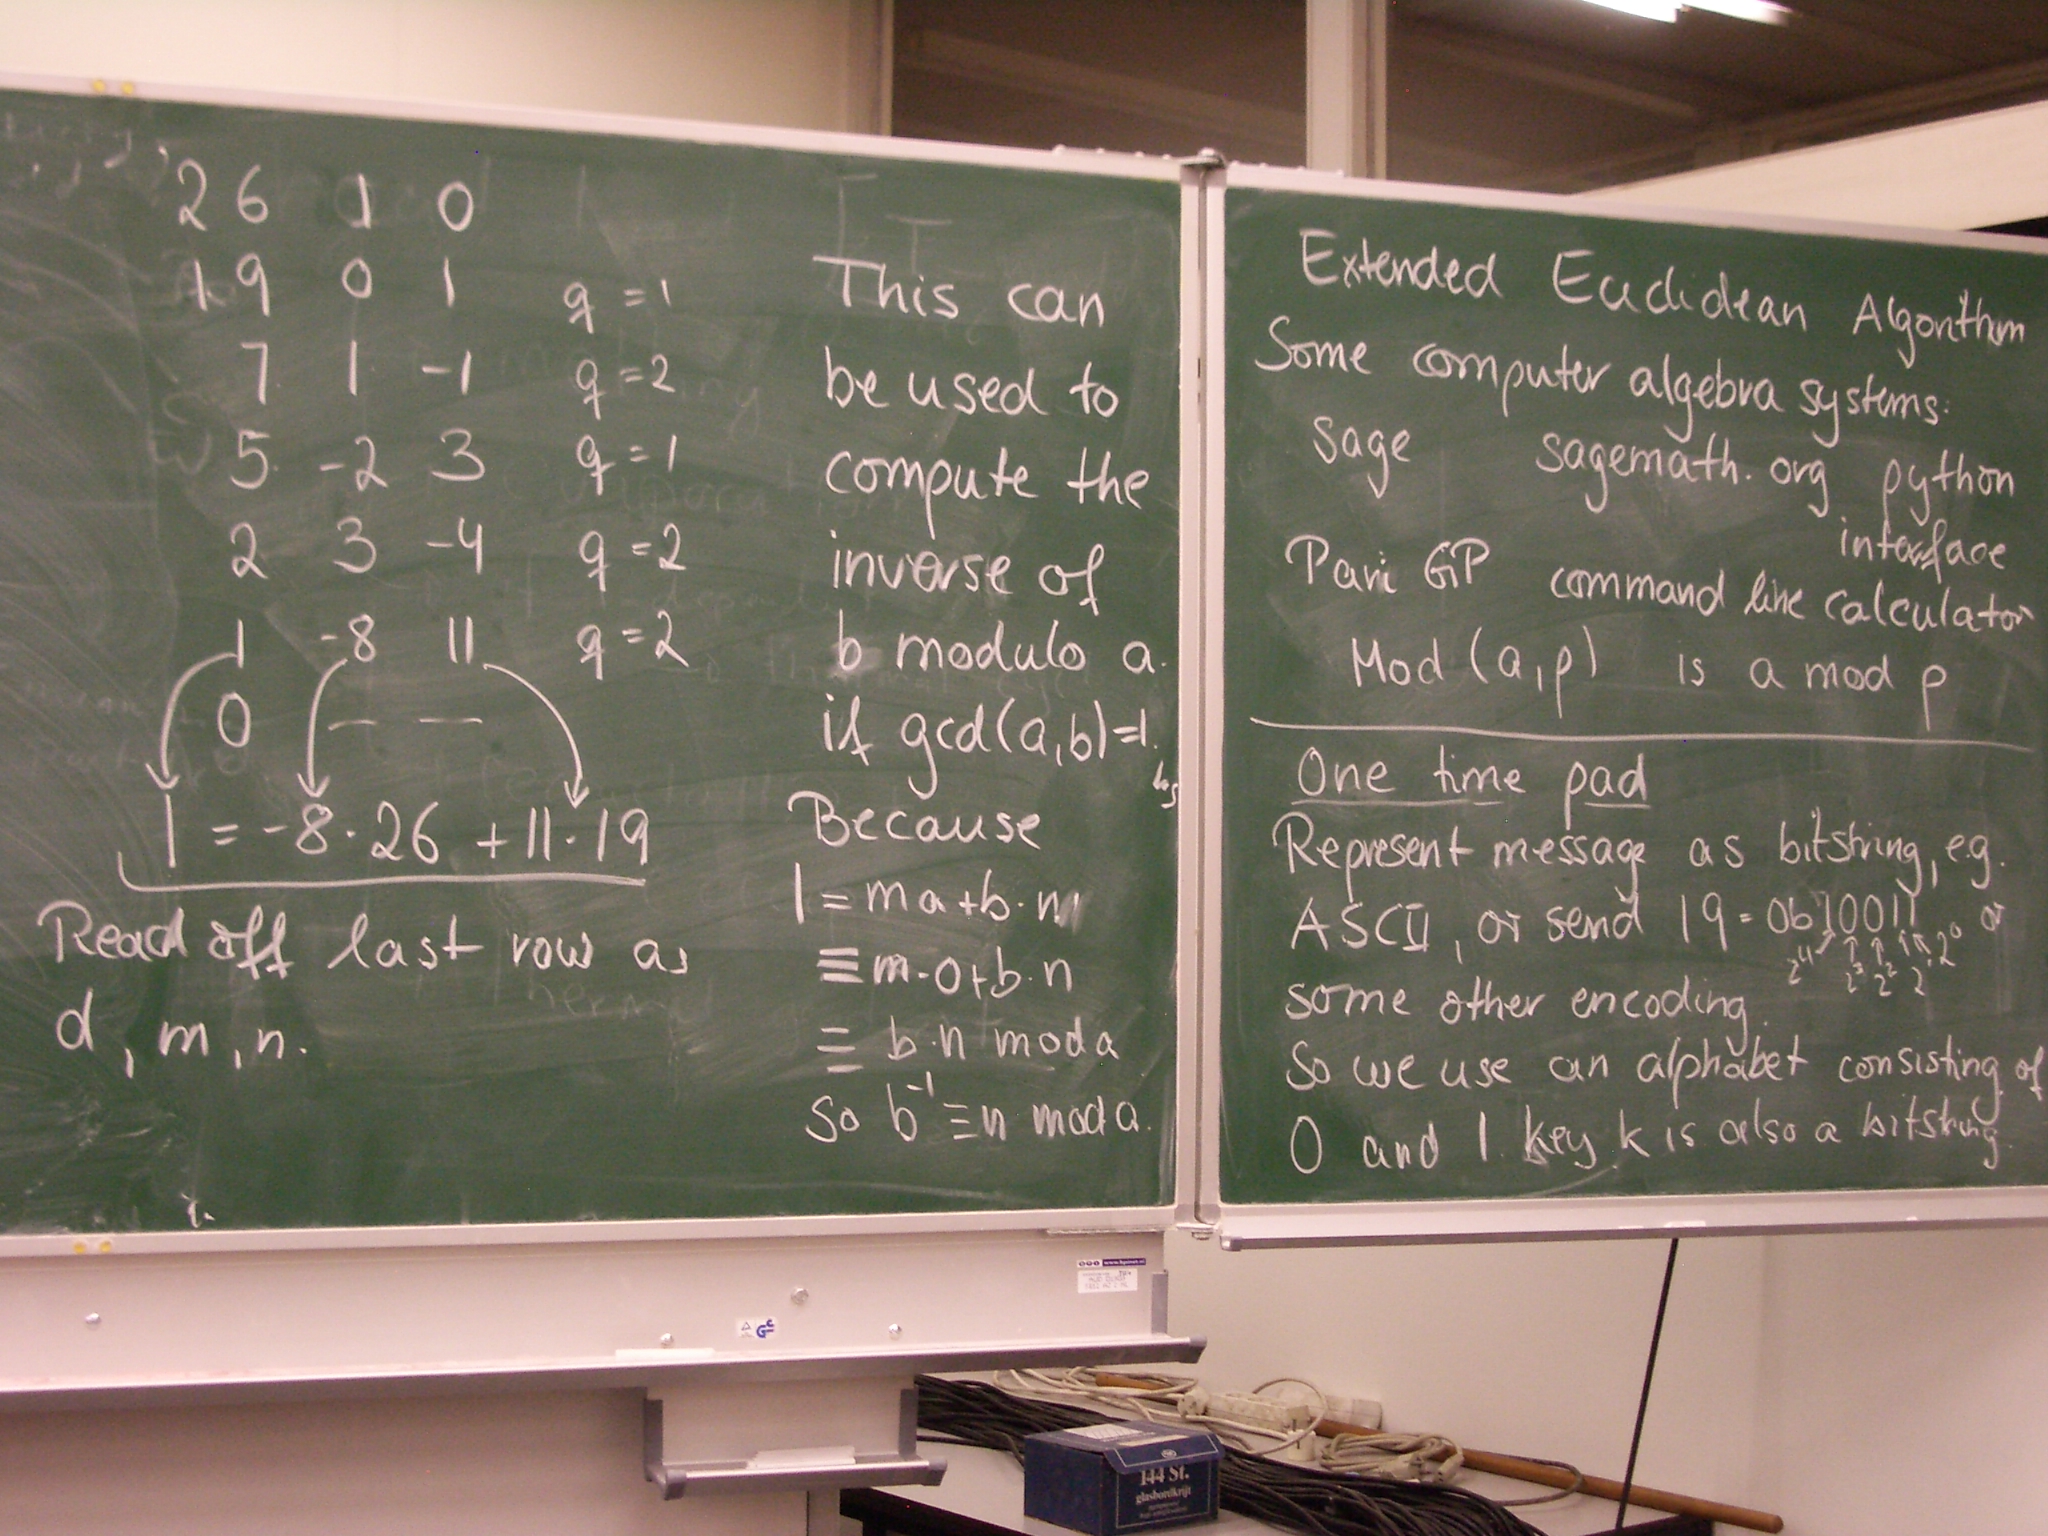 26 1 0
19 0 1 q=1
7 1 -1 q=2
5 -2 3 q=1
2 3 -4 q=2
1 -8 11 q=2
0 — —
1 = -8·26 + 11·19
Read off last row as
d, m, n.
This can
be used to
compute the
inverse of
b modulo a
if gcd(a,b)=1.
Because
1 = ma+b·n
≡ m·0+b·n
≡ b·n mod a
So b⁻¹ ≡ n mod a.
Extended Euclidean Algorithm
Some computer algebra systems:
Sage sagemath.org python
interface
Pari GP command line calculator
Mod(a,p) is a mod p
One time pad
Represent message as bitstring, e.g.
ASCII, or send 19 = 0b10011 or
2⁴ 2³ 2² 2¹ 2⁰
some other encoding.
So we use an alphabet consisting of
0 and 1. key k is also a bitstring.
144 St.
glasbordkrijt